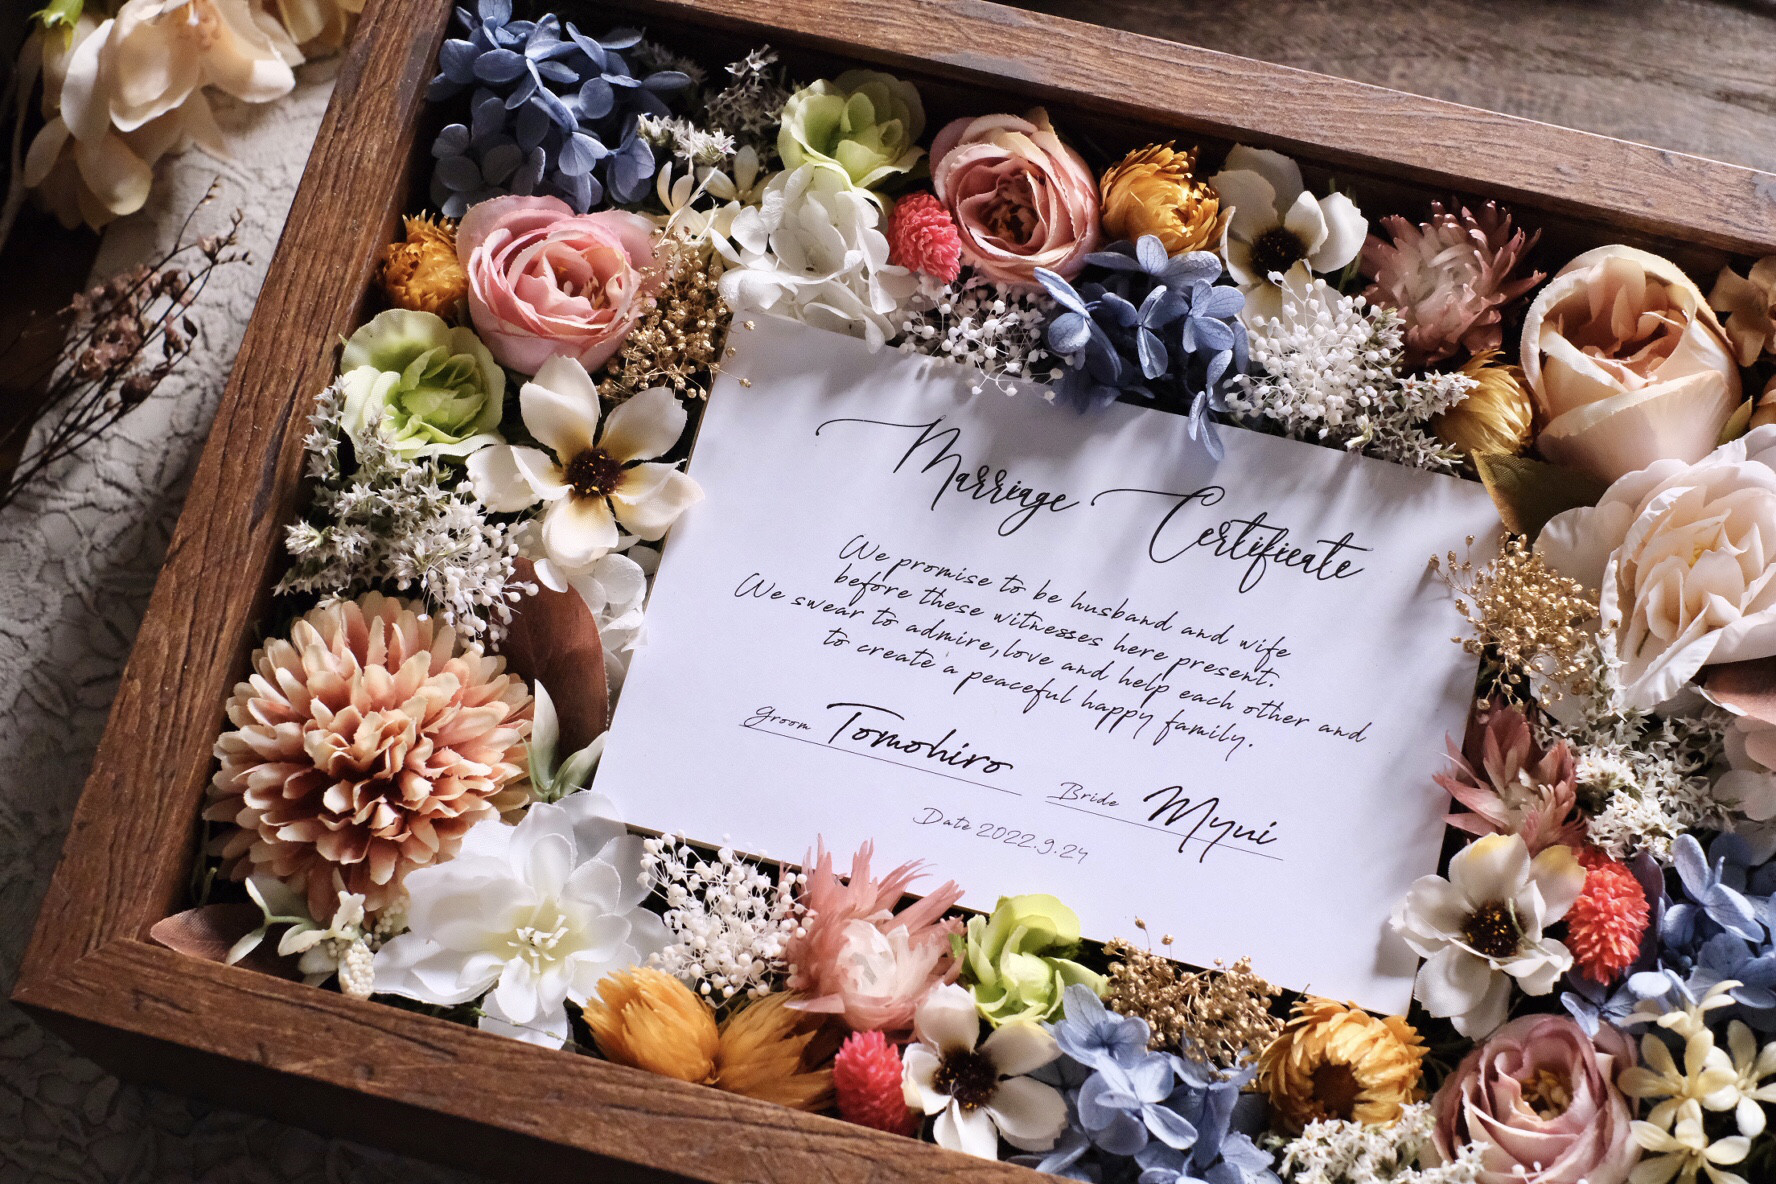 Marriage Certificate
We promise to be husband and wife
before these witnesses here present.
We swear to admire, love and help each other and
to create a peaceful happy family.
Groom Tomohiro Bride Myui
Date 2022.9.24